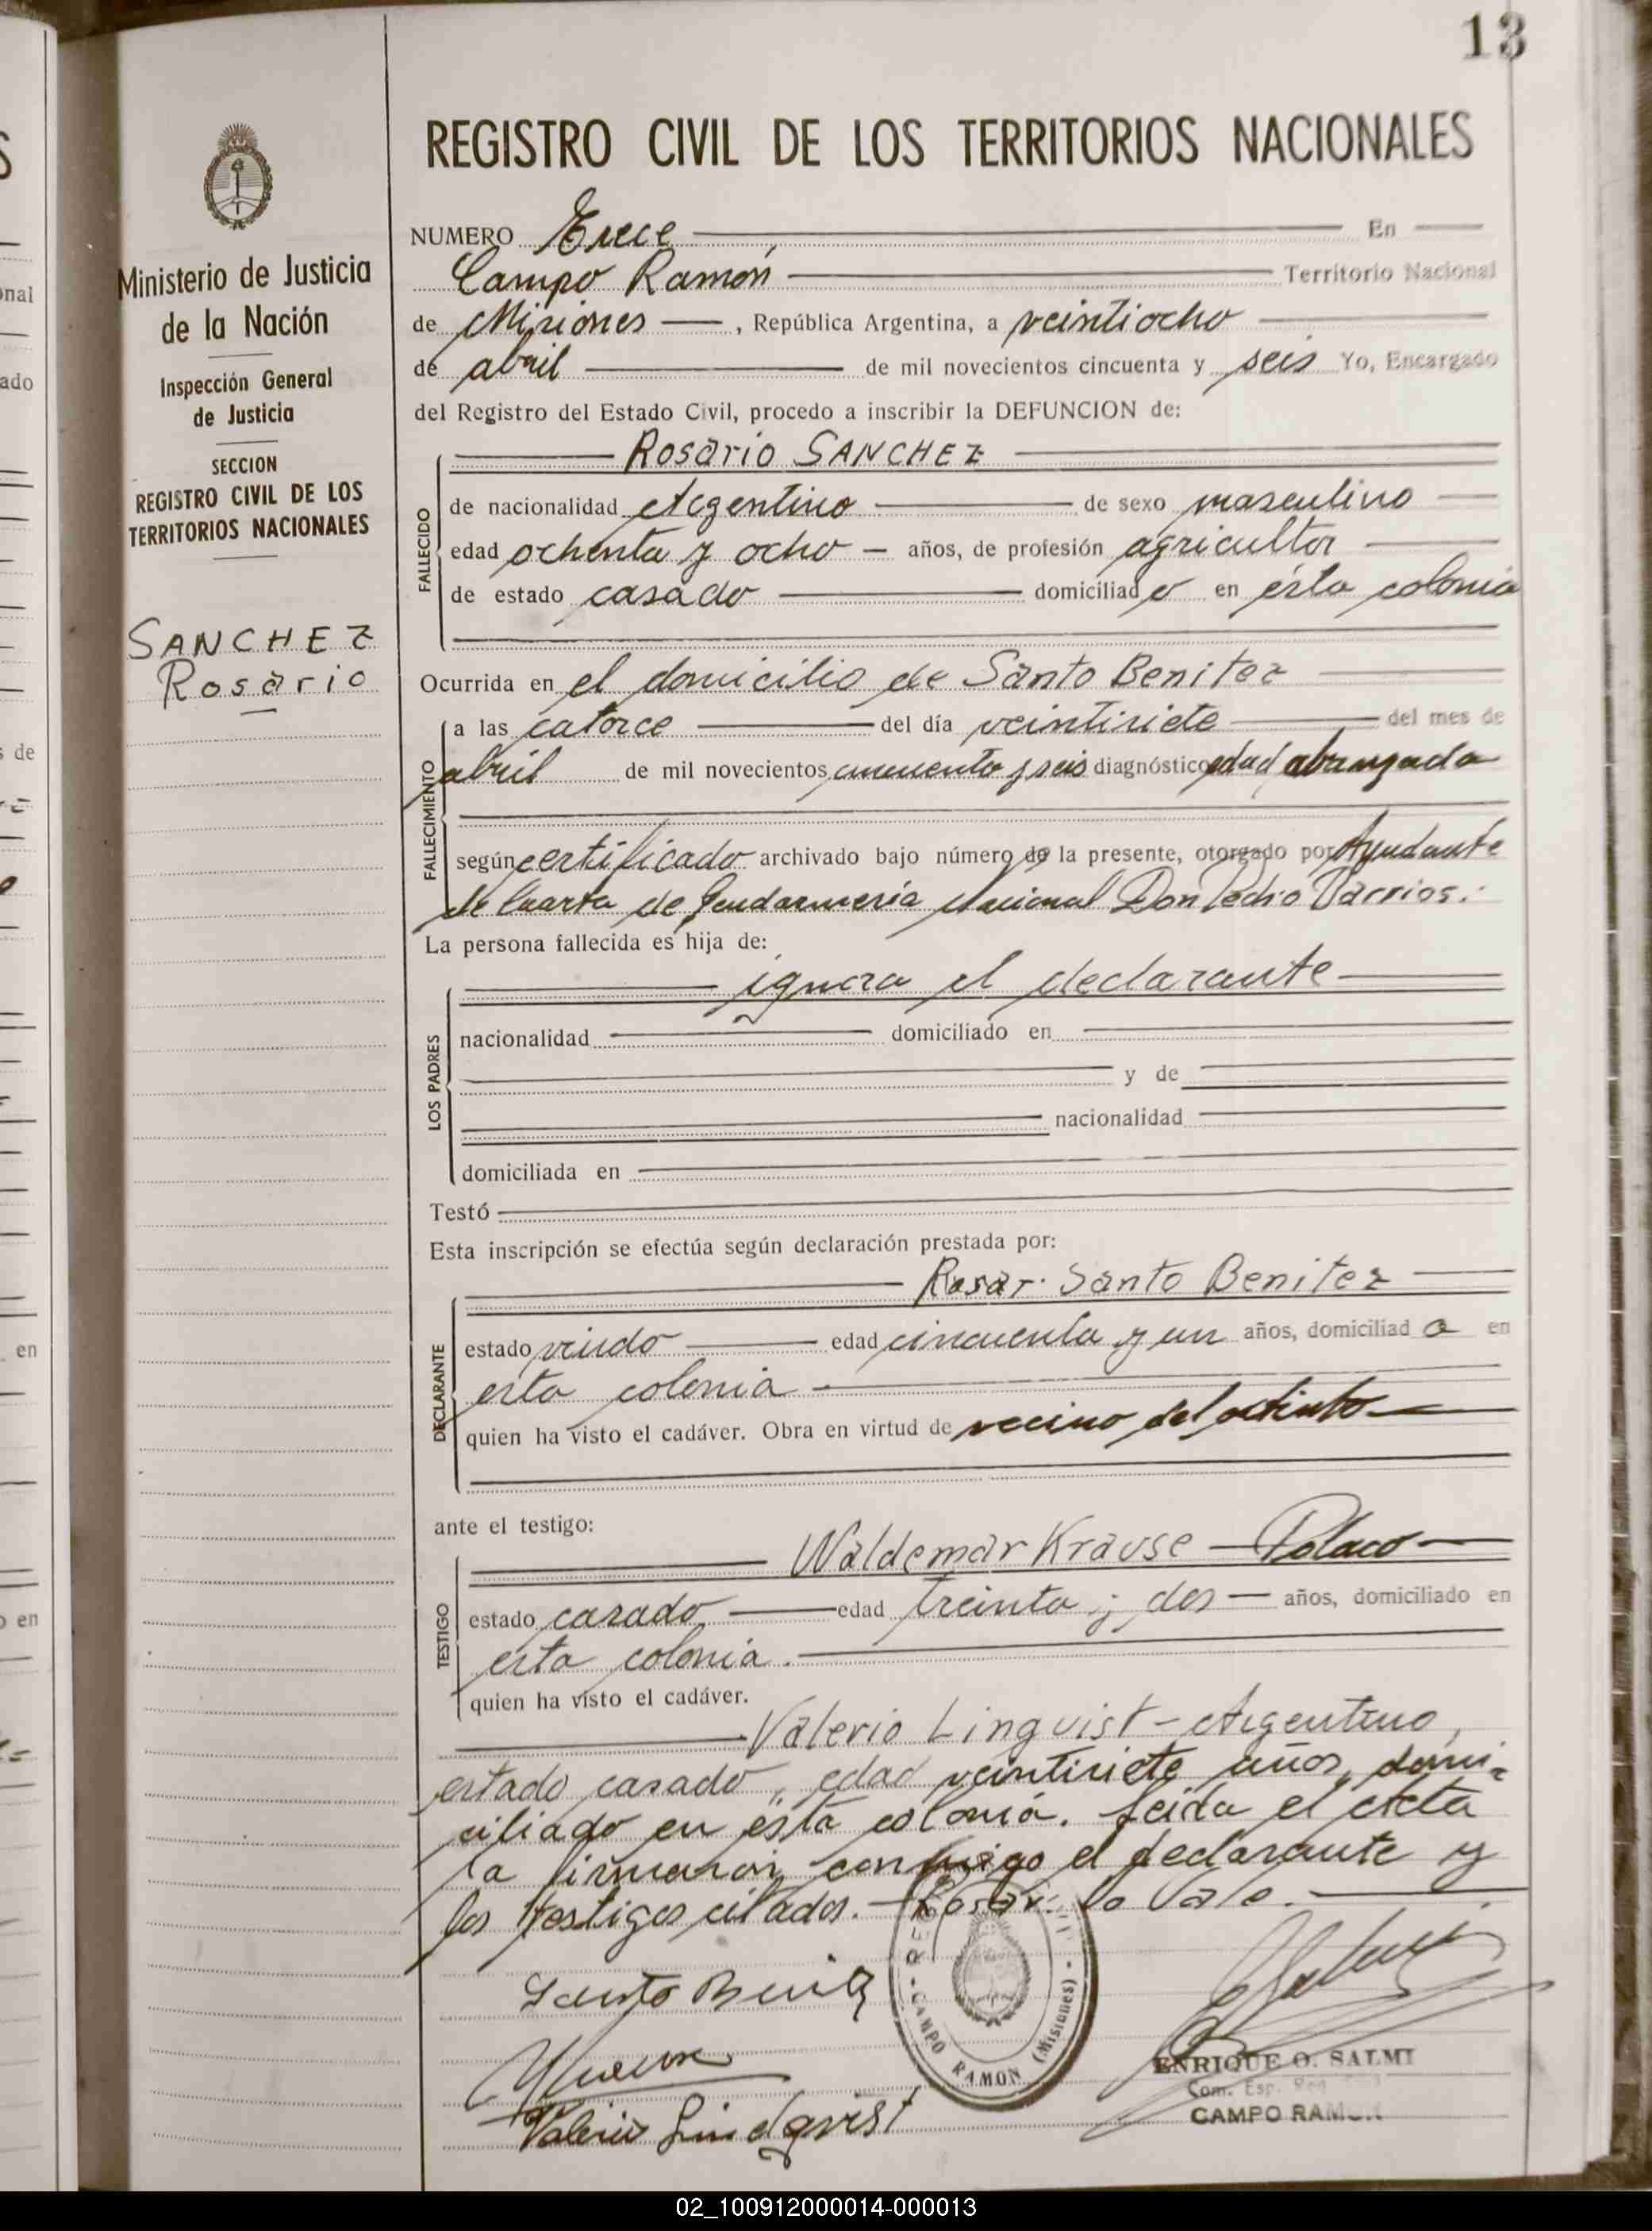 13
REGISTRO CIVIL DE LOS TERRITORIOS NACIONALES
Ministerio de Justicia
de la Nación
Inspección General
de Justicia
SECCION
REGISTRO CIVIL DE LOS
TERRITORIOS NACIONALES
SANCHEZ
Rosario
NUMERO Trece En
Campo Ramón Territorio Nacional
de Misiones, República Argentina, a veintiocho
de abril de mil novecientos cincuenta y seis Yo, Encargado
del Registro del Estado Civil, procedo a inscribir la DEFUNCION de:
Rosario SANCHEZ
FALLECIDO
de nacionalidad Argentino de sexo masculino
edad ochenta y ocho – años, de profesión agricultor
de estado casado domiciliado en ésta colonia
Ocurrida en el domicilio de Santo Benitez
FALLECIMIENTO
a las catorce del día veintisiete del mes de
abril de mil novecientos cincuenta y seis diagnóstico edad abanzada
según certificado archivado bajo número de la presente, otorgado por Ayudante
de Cuarta de Gendarmería Nacional Don Pedro Barrios.
La persona fallecida es hija de:
ignora el declarante
LOS PADRES
nacionalidad domiciliado en
y de
nacionalidad
domiciliada en
Testó
Esta inscripción se efectúa según declaración prestada por:
Rosar. Santo Benitez
DECLARANTE
estado viudo edad cincuenta y un años, domiciliado en
esta colonia
quien ha visto el cadáver. Obra en virtud de vecino del extinto
ante el testigo:
Waldemar Krause – Polaco
TESTIGO
estado casado, edad treinta y dos – años, domiciliado en
esta colonia.
quien ha visto el cadáver.
Valerio Linqvist – Argentino,
estado casado, edad veintisiete años, domi-
ciliado en ésta colonia. Leida el acta
la firmaron conmigo el declarante y
los testigos citados. – Rosar: No Vale.
Santo Beniz
Valerio Lindqvist
CAMPO RAMON (Misiones)
ENRIQUE O. SALMI
CAMPO RAMON
02_100912000014-000013